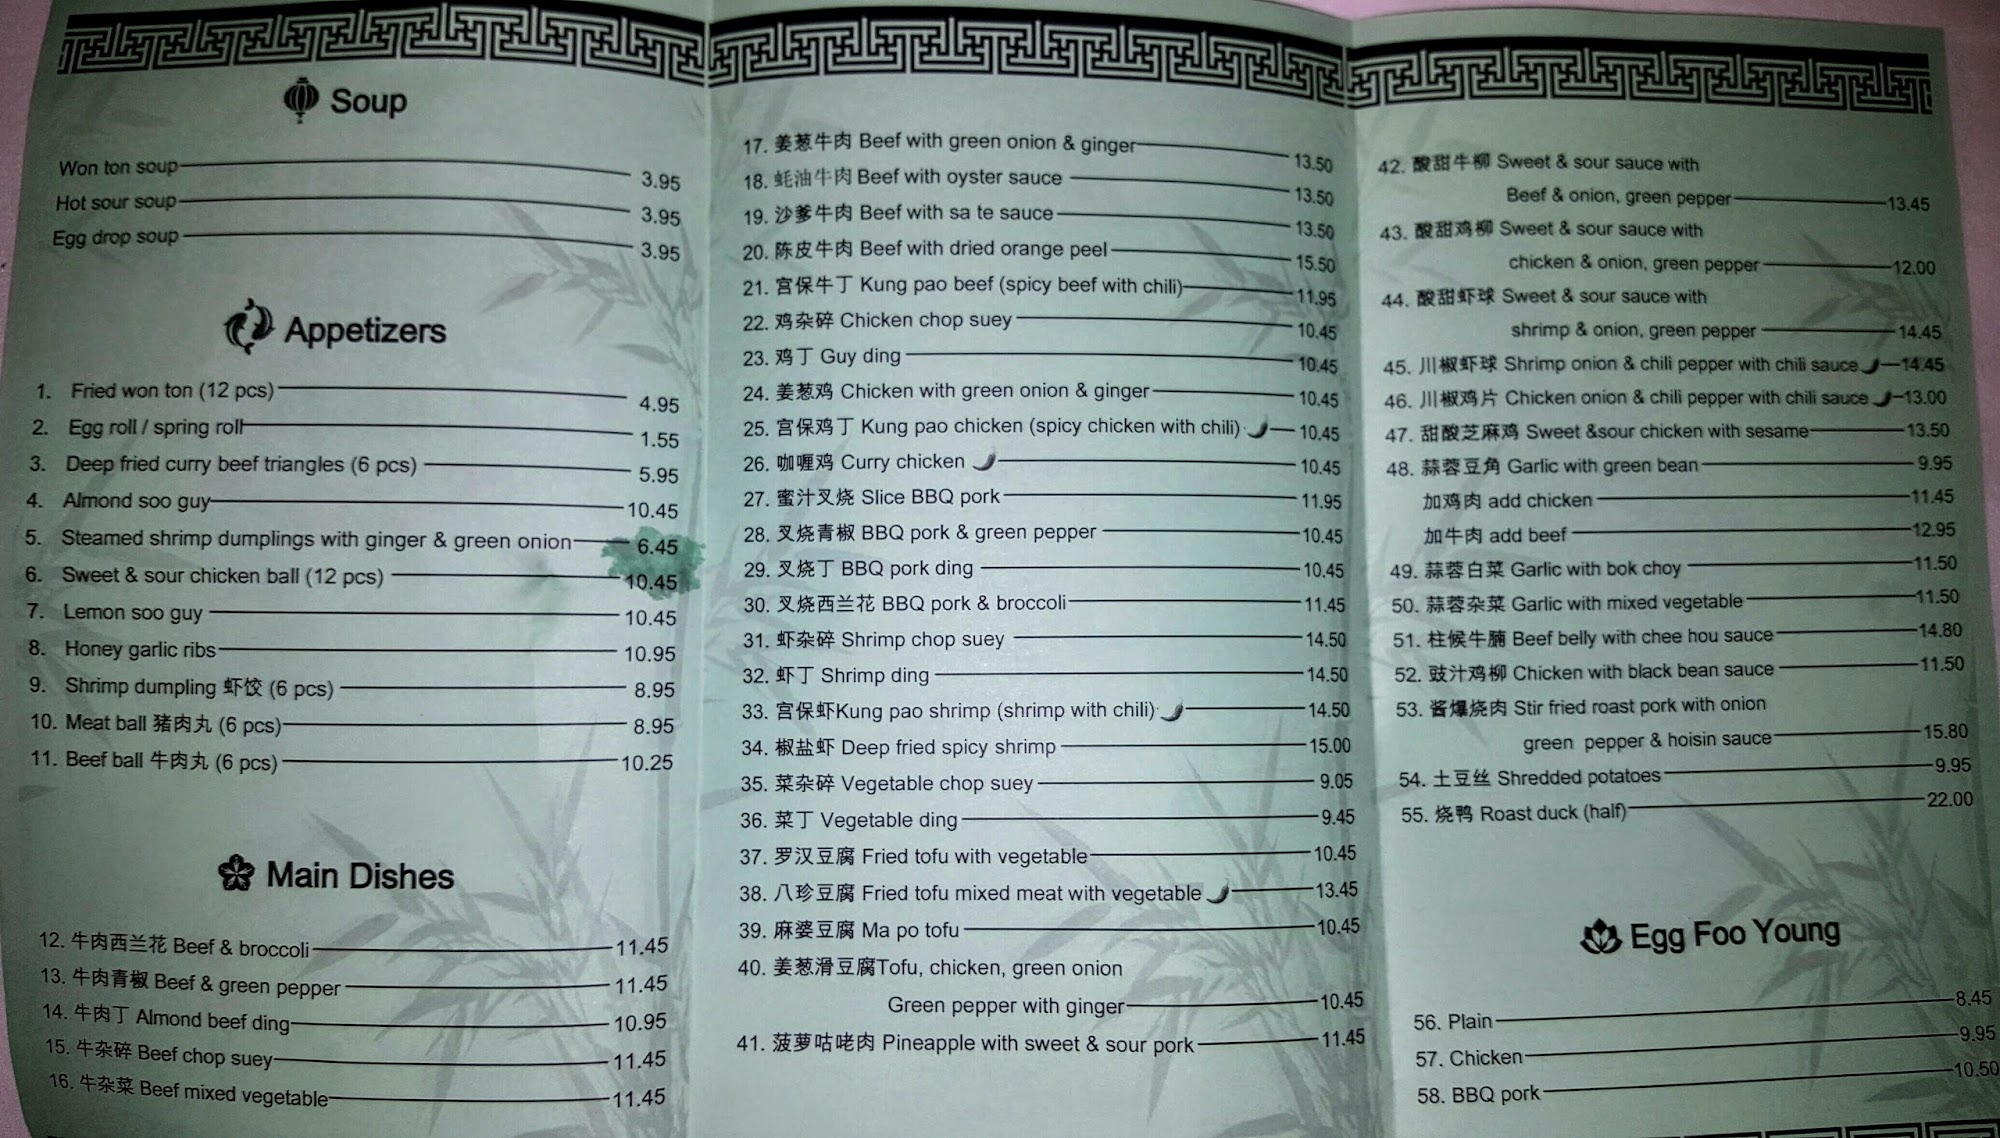 Soup
Won ton soup 3.95
Hot sour soup 3.95
Egg drop soup 3.95
Appetizers
1. Fried won ton (12 pcs) 4.95
2. Egg roll / spring roll 1.55
3. Deep fried curry beef triangles (6 pcs) 5.95
4. Almond soo guy 10.45
5. Steamed shrimp dumplings with ginger & green onion 6.45
6. Sweet & sour chicken ball (12 pcs) 10.45
7. Lemon soo guy 10.45
8. Honey garlic ribs 10.95
9. Shrimp dumpling 虾饺 (6 pcs) 8.95
10. Meat ball 猪肉丸 (6 pcs) 8.95
11. Beef ball 牛肉丸 (6 pcs) 10.25
Main Dishes
12. 牛肉西兰花 Beef & broccoli 11.45
13. 牛肉青椒 Beef & green pepper 11.45
14. 牛肉丁 Almond beef ding 10.95
15. 牛杂碎 Beef chop suey 11.45
16. 牛杂菜 Beef mixed vegetable 11.45
17. 姜葱牛肉 Beef with green onion & ginger 13.50
18. 蚝油牛肉 Beef with oyster sauce 13.50
19. 沙爹牛肉 Beef with sa te sauce 13.50
20. 陈皮牛肉 Beef with dried orange peel 15.50
21. 宫保牛丁 Kung pao beef (spicy beef with chili) 11.95
22. 鸡杂碎 Chicken chop suey 10.45
23. 鸡丁 Guy ding 10.45
24. 姜葱鸡 Chicken with green onion & ginger 10.45
25. 宫保鸡丁 Kung pao chicken (spicy chicken with chili) 10.45
26. 咖喱鸡 Curry chicken 10.45
27. 蜜汁叉烧 Slice BBQ pork 11.95
28. 叉烧青椒 BBQ pork & green pepper 10.45
29. 叉烧丁 BBQ pork ding 10.45
30. 叉烧西兰花 BBQ pork & broccoli 11.45
31. 虾杂碎 Shrimp chop suey 14.50
32. 虾丁 Shrimp ding 14.50
33. 宫保虾Kung pao shrimp (shrimp with chili) 14.50
34. 椒盐虾 Deep fried spicy shrimp 15.00
35. 菜杂碎 Vegetable chop suey 9.05
36. 菜丁 Vegetable ding 9.45
37. 罗汉豆腐 Fried tofu with vegetable 10.45
38. 八珍豆腐 Fried tofu mixed meat with vegetable 13.45
39. 麻婆豆腐 Ma po tofu 10.45
40. 姜葱滑豆腐Tofu, chicken, green onion
Green pepper with ginger 10.45
41. 菠萝咕咾肉 Pineapple with sweet & sour pork 11.45
42. 酸甜牛柳 Sweet & sour sauce with
Beef & onion, green pepper 13.45
43. 酸甜鸡柳 Sweet & sour sauce with
chicken & onion, green pepper 12.00
44. 酸甜虾球 Sweet & sour sauce with
shrimp & onion, green pepper 14.45
45. 川椒虾球 Shrimp onion & chili pepper with chili sauce 14.45
46. 川椒鸡片 Chicken onion & chili pepper with chili sauce 13.00
47. 甜酸芝麻鸡 Sweet &sour chicken with sesame 13.50
48. 蒜蓉豆角 Garlic with green bean 9.95
加鸡肉 add chicken 11.45
加牛肉 add beef 12.95
49. 蒜蓉白菜 Garlic with bok choy 11.50
50. 蒜蓉杂菜 Garlic with mixed vegetable 11.50
51. 柱候牛腩 Beef belly with chee hou sauce 14.80
52. 豉汁鸡柳 Chicken with black bean sauce 11.50
53. 酱爆烧肉 Stir fried roast pork with onion
green pepper & hoisin sauce 15.80
54. 土豆丝 Shredded potatoes 9.95
55. 烧鸭 Roast duck (half) 22.00
Egg Foo Young
56. Plain 8.45
57. Chicken 9.95
58. BBQ pork 10.50